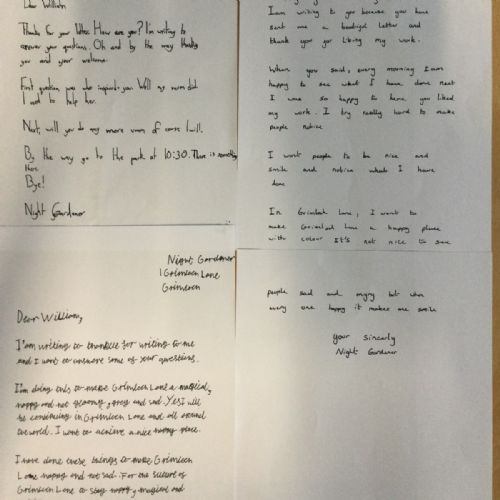 Dear William
Thanks for your letter. How are you? I'm writing to
answer your questions. Oh and by the way thank
you and your welcome.
First question was who inspired you. Well my mum did
I out to help her.
Next, will you do any more of course I will.
By the way go to the park at 10:30. There is something
there
Bye!
Night Gardener
I am writing to you because you have
sent me a letter and
thank you for liking my work.
When you said, every morning I am
happy to see what I have done next
I was so happy to you liked
my work. I try really hard to make
people notice
I want people to be nice and
smile and notice what I have
done
In Grimloch Lane, I want to
make Grimloch Lane a happy place
with colour It's not nice to see
people sad and angry but when
every one happy it makes me smile
your sincerly
Night Gardener
Night Gardener
1 Grimloch Lane
Dear William,
I'am writing to for writing to me
and I want to some of your questions.
I'm doing this to make Grimloch Lane a magical,
happy and not gloomy, grey and sad. Yes I will
be continuing in Grimloch Lane and all around
the world. I want to achieve a nice happy place.
I have done these things to make Grimloch
Lane happy and not sad. For the of
Grimloch Lane to stay happy, magical and